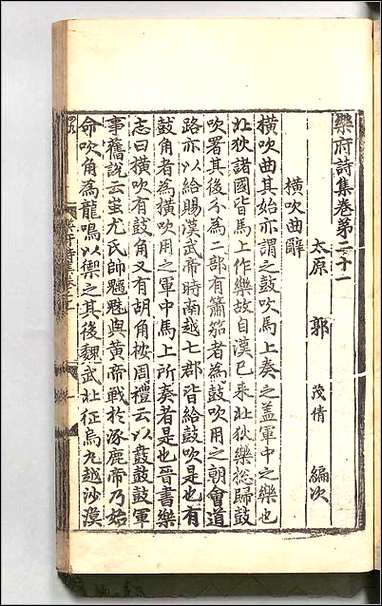 樂府詩集卷第二十一
太原 郭 茂倩 編次
橫吹曲辭
橫吹曲其始亦謂之鼓吹馬上奏之蓋軍中之樂也
北狄諸國皆馬上作樂故自漢已來北狄樂總歸鼓
吹署其後分為二部有簫笳者為鼓吹用之朝會道
路亦以給賜漢武帝時南越七郡皆給鼓吹是也有
鼓角者為橫吹用之軍中馬上所奏者是也晉書樂
志曰橫吹有鼓角又有胡角按周禮云以鼖鼓鼓軍
事舊說云蚩尤氏帥魑魅與黃帝戰於涿鹿帝乃始
命吹角為龍鳴以禦之其後魏武北征烏丸越沙漠